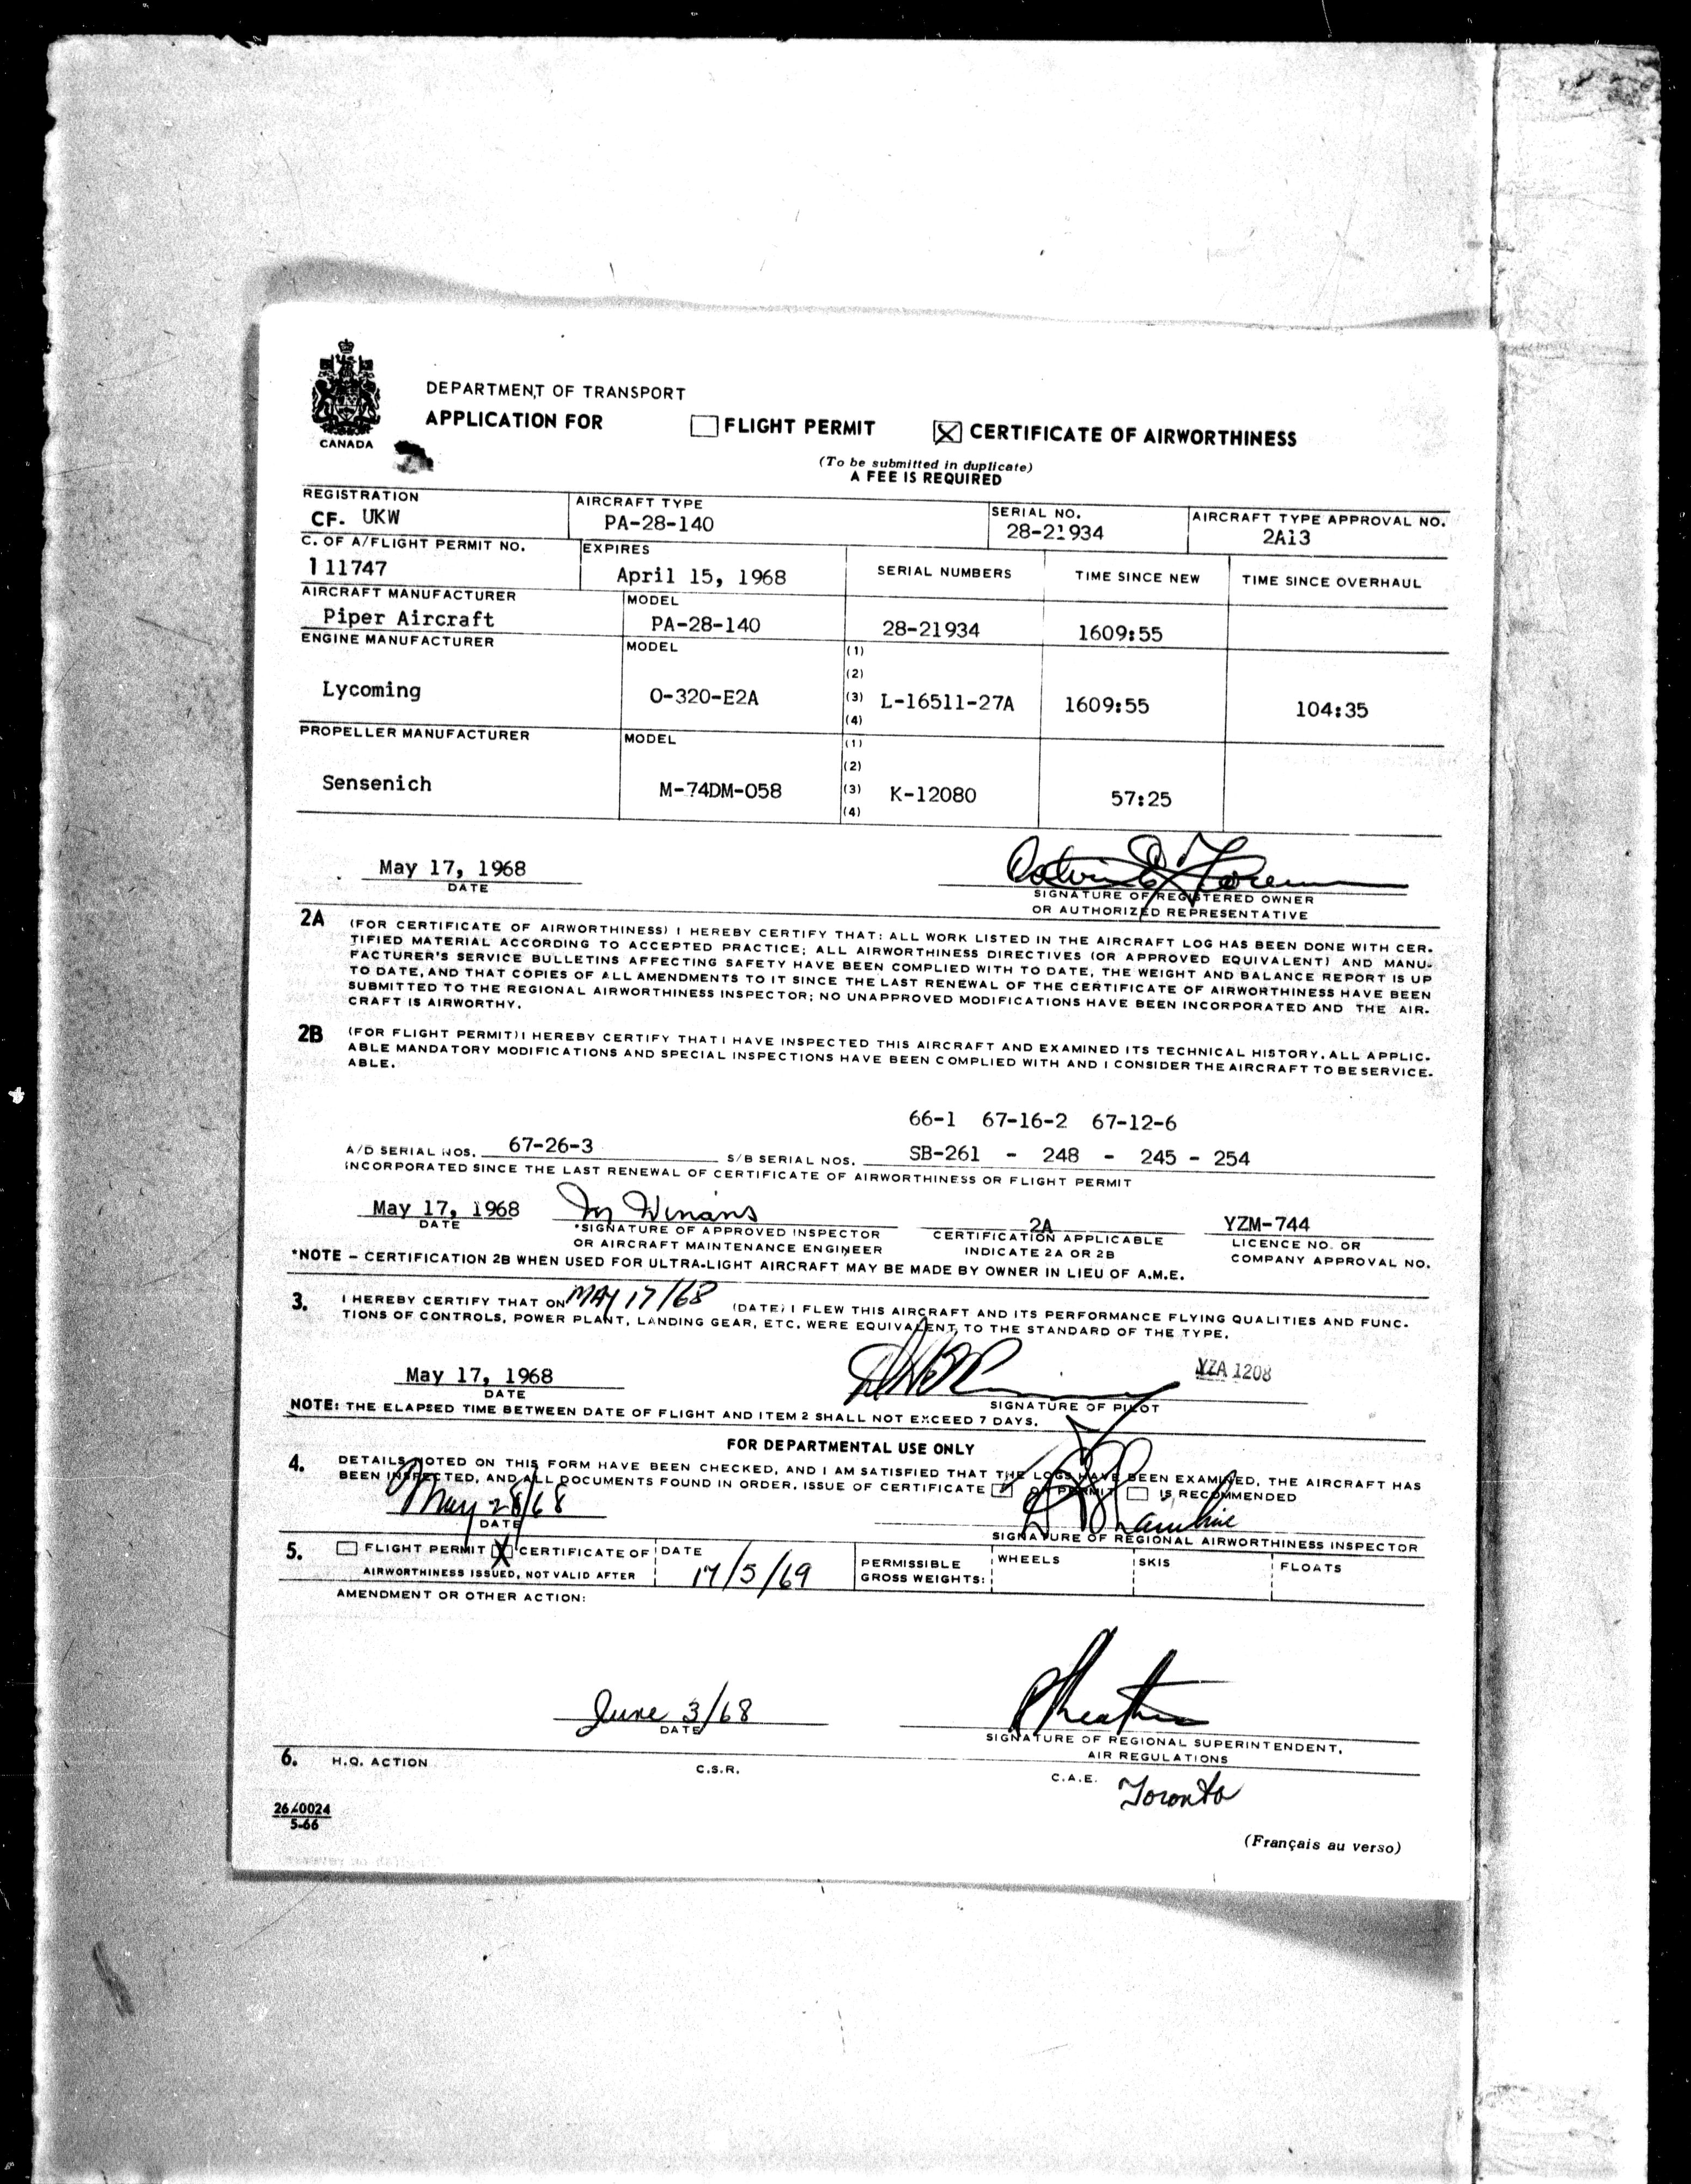 CANADA
DEPARTMENT OF TRANSPORT
APPLICATION FOR FLIGHT PERMIT CERTIFICATE OF AIRWORTHINESS
(To be submitted in duplicate)
A FEE IS REQUIRED
REGISTRATION AIRCRAFT TYPE SERIAL NO. AIRCRAFT TYPE APPROVAL NO.
CF. UKW PA-28-140 28-21934 2A13
C. OF A/FLIGHT PERMIT NO. EXPIRES SERIAL NUMBERS TIME SINCE NEW TIME SINCE OVERHAUL
111747 April 15, 1968
AIRCRAFT MANUFACTURER MODEL
Piper Aircraft PA-28-140 28-21934 1609:55
ENGINE MANUFACTURER MODEL (1)
(2)
Lycoming O-320-E2A (3) L-16511-27A 1609:55 104:35
(4)
PROPELLER MANUFACTURER MODEL (1)
(2)
Sensenich M-74DM-058 (3) K-12080 57:25
(4)
May 17, 1968
DATE SIGNATURE OF REGISTERED OWNER
OR AUTHORIZED REPRESENTATIVE
2A (FOR CERTIFICATE OF AIRWORTHINESS) I HEREBY CERTIFY THAT: ALL WORK LISTED IN THE AIRCRAFT LOG HAS BEEN DONE WITH CER-
TIFIED MATERIAL ACCORDING TO ACCEPTED PRACTICE; ALL AIRWORTHINESS DIRECTIVES (OR APPROVED EQUIVALENT) AND MANU-
FACTURER'S SERVICE BULLETINS AFFECTING SAFETY HAVE BEEN COMPLIED WITH TO DATE, THE WEIGHT AND BALANCE REPORT IS UP
TO DATE, AND THAT COPIES OF ALL AMENDMENTS TO IT SINCE THE LAST RENEWAL OF THE CERTIFICATE OF AIRWORTHINESS HAVE BEEN
SUBMITTED TO THE REGIONAL AIRWORTHINESS INSPECTOR; NO UNAPPROVED MODIFICATIONS HAVE BEEN INCORPORATED AND THE AIR-
CRAFT IS AIRWORTHY.
2B (FOR FLIGHT PERMIT) I HEREBY CERTIFY THAT I HAVE INSPECTED THIS AIRCRAFT AND EXAMINED ITS TECHNICAL HISTORY. ALL APPLIC-
ABLE MANDATORY MODIFICATIONS AND SPECIAL INSPECTIONS HAVE BEEN COMPLIED WITH AND I CONSIDER THE AIRCRAFT TO BE SERVICE-
ABLE.
66-1 67-16-2 67-12-6
A/D SERIAL NOS. 67-26-3 S/B SERIAL NOS. SB-261 - 248 - 245 - 254
INCORPORATED SINCE THE LAST RENEWAL OF CERTIFICATE OF AIRWORTHINESS OR FLIGHT PERMIT
May 17, 1968 Winans 2A YZM-744
DATE *SIGNATURE OF APPROVED INSPECTOR CERTIFICATION APPLICABLE LICENCE NO. OR
OR AIRCRAFT MAINTENANCE ENGINEER INDICATE 2A OR 2B COMPANY APPROVAL NO.
*NOTE - CERTIFICATION 2B WHEN USED FOR ULTRA-LIGHT AIRCRAFT MAY BE MADE BY OWNER IN LIEU OF A.M.E.
3. I HEREBY CERTIFY THAT ON MAY 17/68 (DATE) I FLEW THIS AIRCRAFT AND ITS PERFORMANCE FLYING QUALITIES AND FUNC-
TIONS OF CONTROLS, POWER PLANT, LANDING GEAR, ETC. WERE EQUIVALENT TO THE STANDARD OF THE TYPE.
May 17, 1968 YZA 1208
DATE SIGNATURE OF PILOT
NOTE: THE ELAPSED TIME BETWEEN DATE OF FLIGHT AND ITEM 2 SHALL NOT EXCEED 7 DAYS.
FOR DEPARTMENTAL USE ONLY
4. DETAILS NOTED ON THIS FORM HAVE BEEN CHECKED, AND I AM SATISFIED THAT THE LOGS HAVE BEEN EXAMINED, THE AIRCRAFT HAS
BEEN INSPECTED, AND ALL DOCUMENTS FOUND IN ORDER. ISSUE OF CERTIFICATE OR PERMIT IS RECOMMENDED
May 28/68
DATE SIGNATURE OF REGIONAL AIRWORTHINESS INSPECTOR
5. FLIGHT PERMIT CERTIFICATE OF DATE PERMISSIBLE WHEELS SKIS FLOATS
AIRWORTHINESS ISSUED, NOT VALID AFTER 17/5/69 GROSS WEIGHTS:
AMENDMENT OR OTHER ACTION:
June 3/68
DATE SIGNATURE OF REGIONAL SUPERINTENDENT,
AIR REGULATIONS
6. H.Q. ACTION C.S.R. C.A.E. Toronto
26-0024
5-66
(Français au verso)